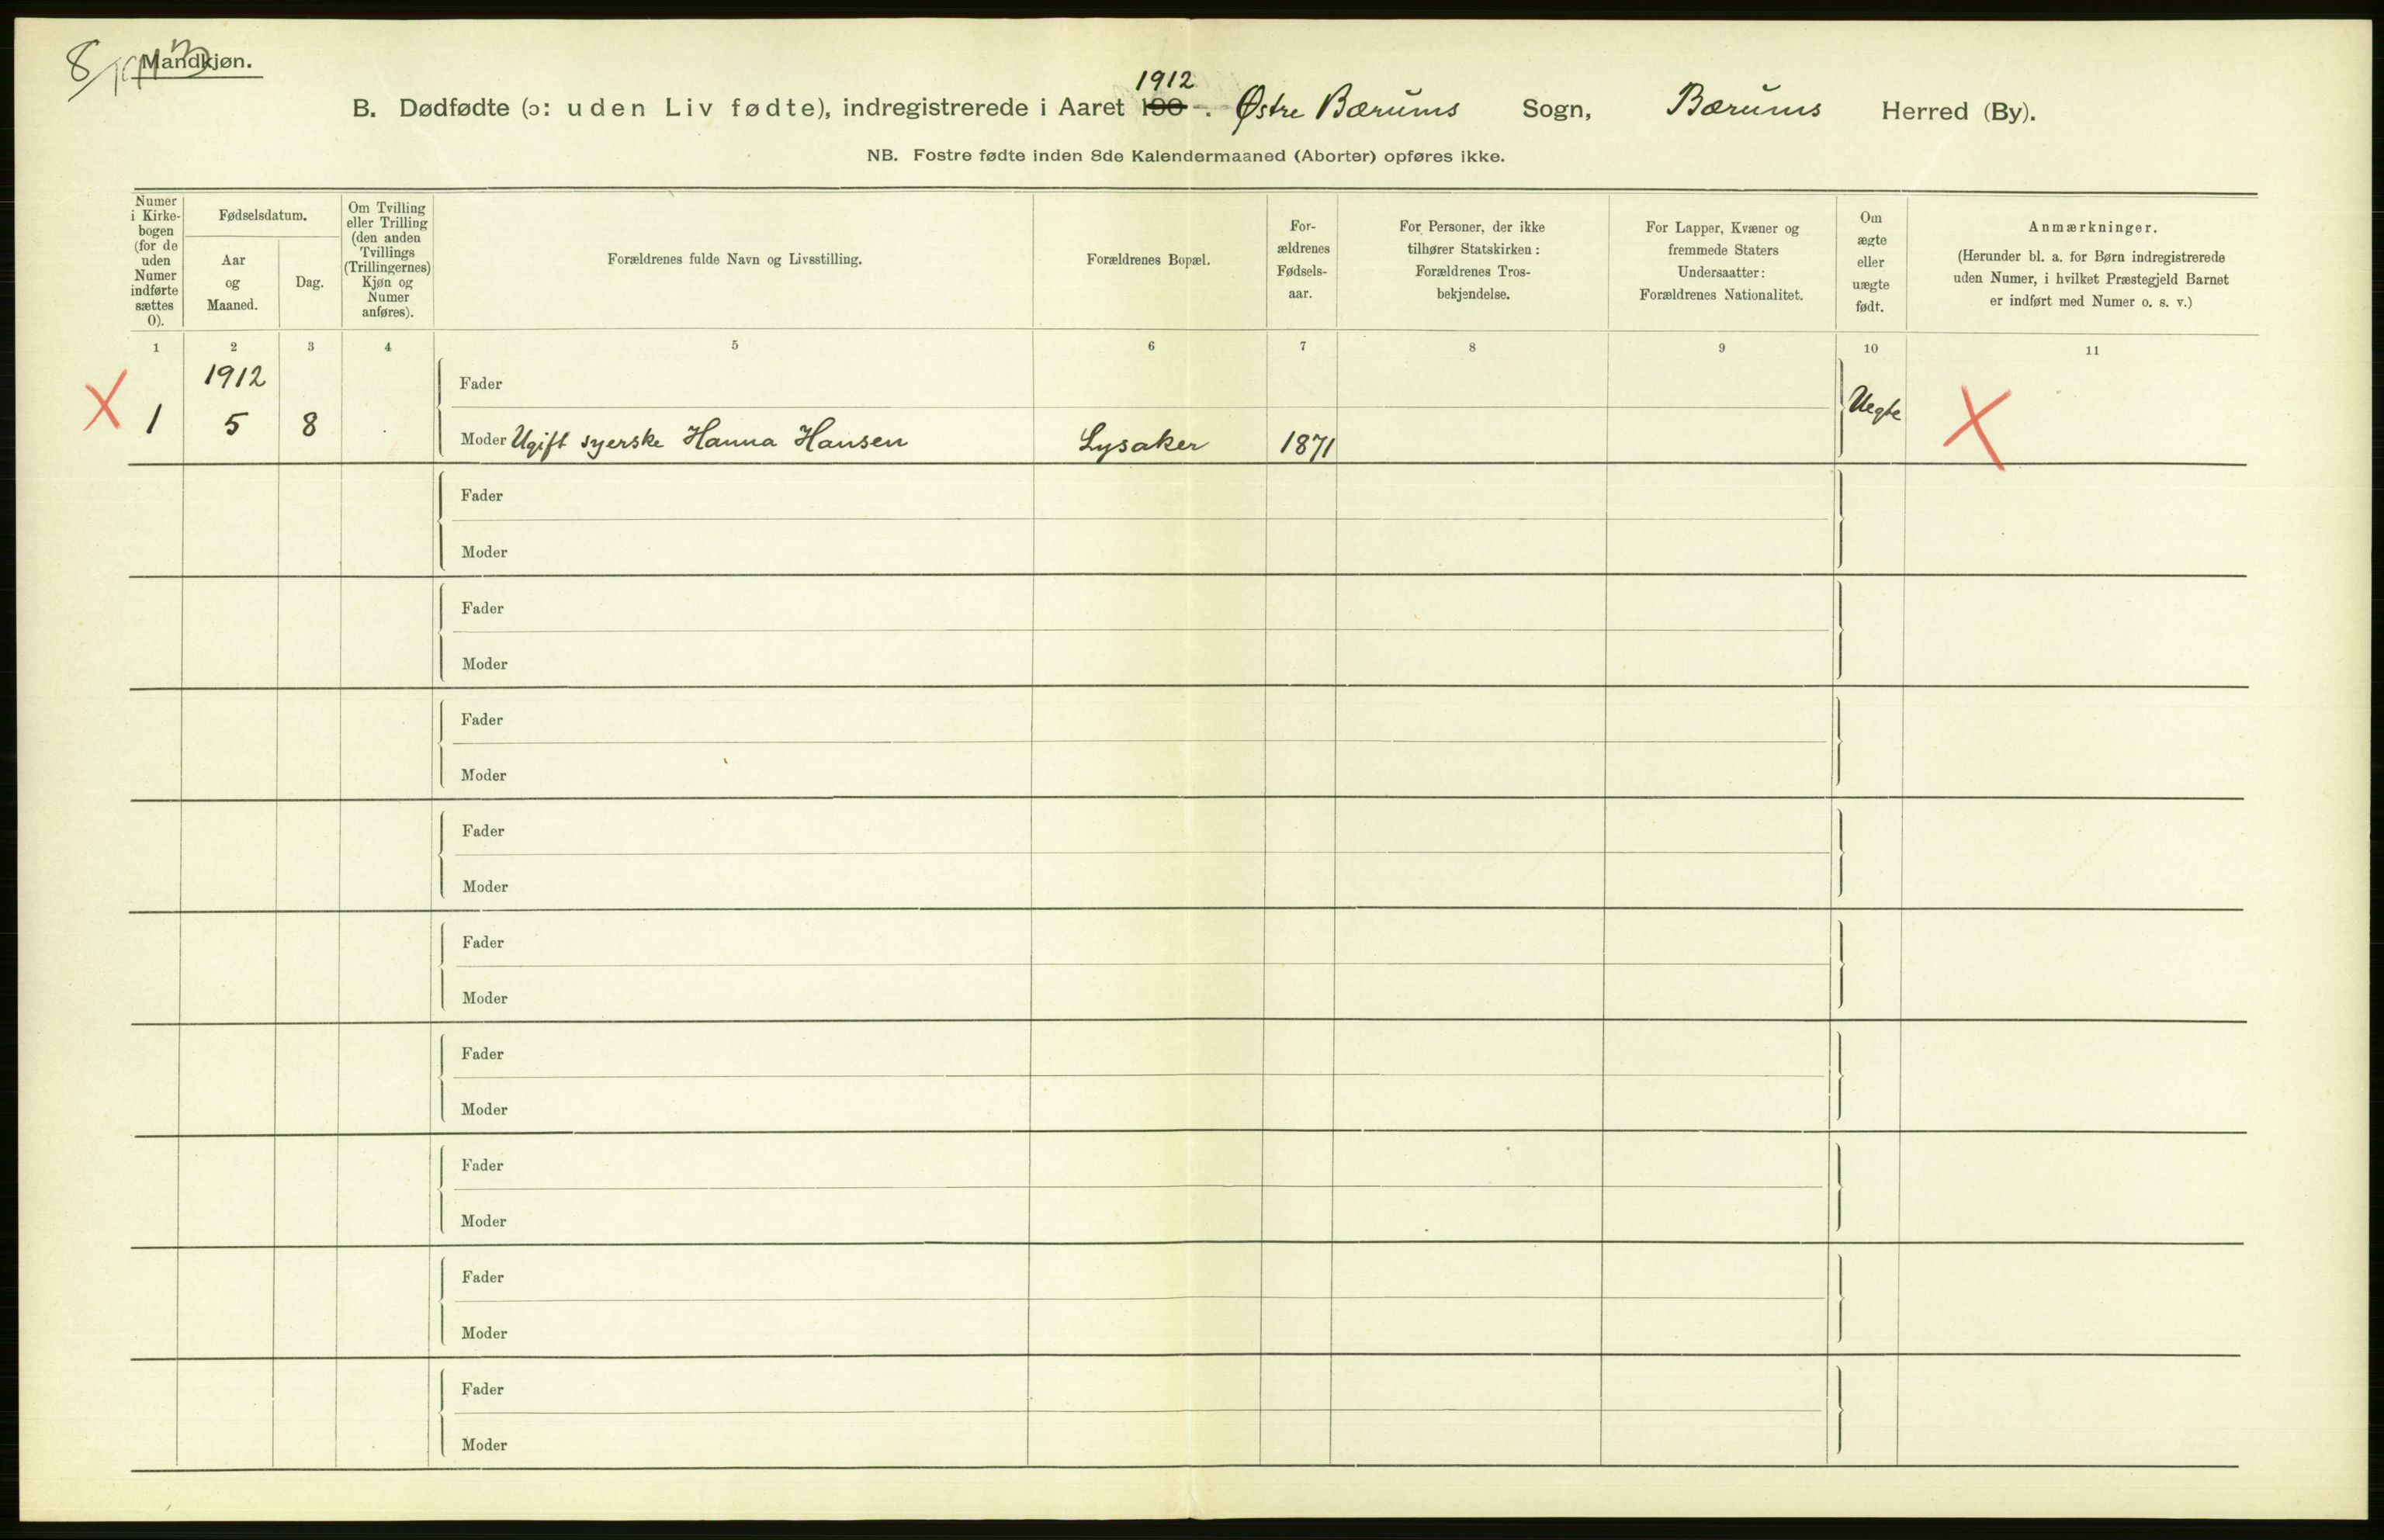 8
Mandkjøn.
1912
B. Dødfødte (ɔ: uden Liv fødte), indregistrerede i Aaret 190 . Østre Bærums Sogn, Bærums Herred (By).
NB. Fostre fødte inden 8de Kalendermaaned (Aborter) opføres ikke.
Numer
i Kirke-
bogen
(for de
uden
Numer
indførte
sættes
0).
Fødselsdatum.
Aar
og
Maaned.
Dag.
Om Tvilling
eller Trilling
(den anden
Tvillings
(Trillingernes)
Kjøn og
Numer
anføres).
Forældrenes fulde Navn og Livsstilling.
Forældrenes Bopæl.
For-
ældrenes
Fødsels-
aar.
For Personer, der ikke
tilhører Statskirken:
Forældrenes Tros-
bekjendelse.
For Lapper, Kvæner og
fremmede Staters
Undersaatter:
Forældrenes Nationalitet.
Om
ægte
eller
uægte
født.
Anmærkninger.
(Herunder bl. a. for Børn indregistrerede
uden Numer, i hvilket Præstegjeld Barnet
er indført med Numer o. s. v.)
1 2 3 4 5 6 7 8 9 10 11
1912 Fader
X 1 5 8 Moder Ugift syerske Hanna Hansen Lysaker 1871 Uegte X
Fader
Moder
Fader
Moder
Fader
Moder
Fader
Moder
Fader
Moder
Fader
Moder
Fader
Moder
Fader
Moder
Fader
Moder